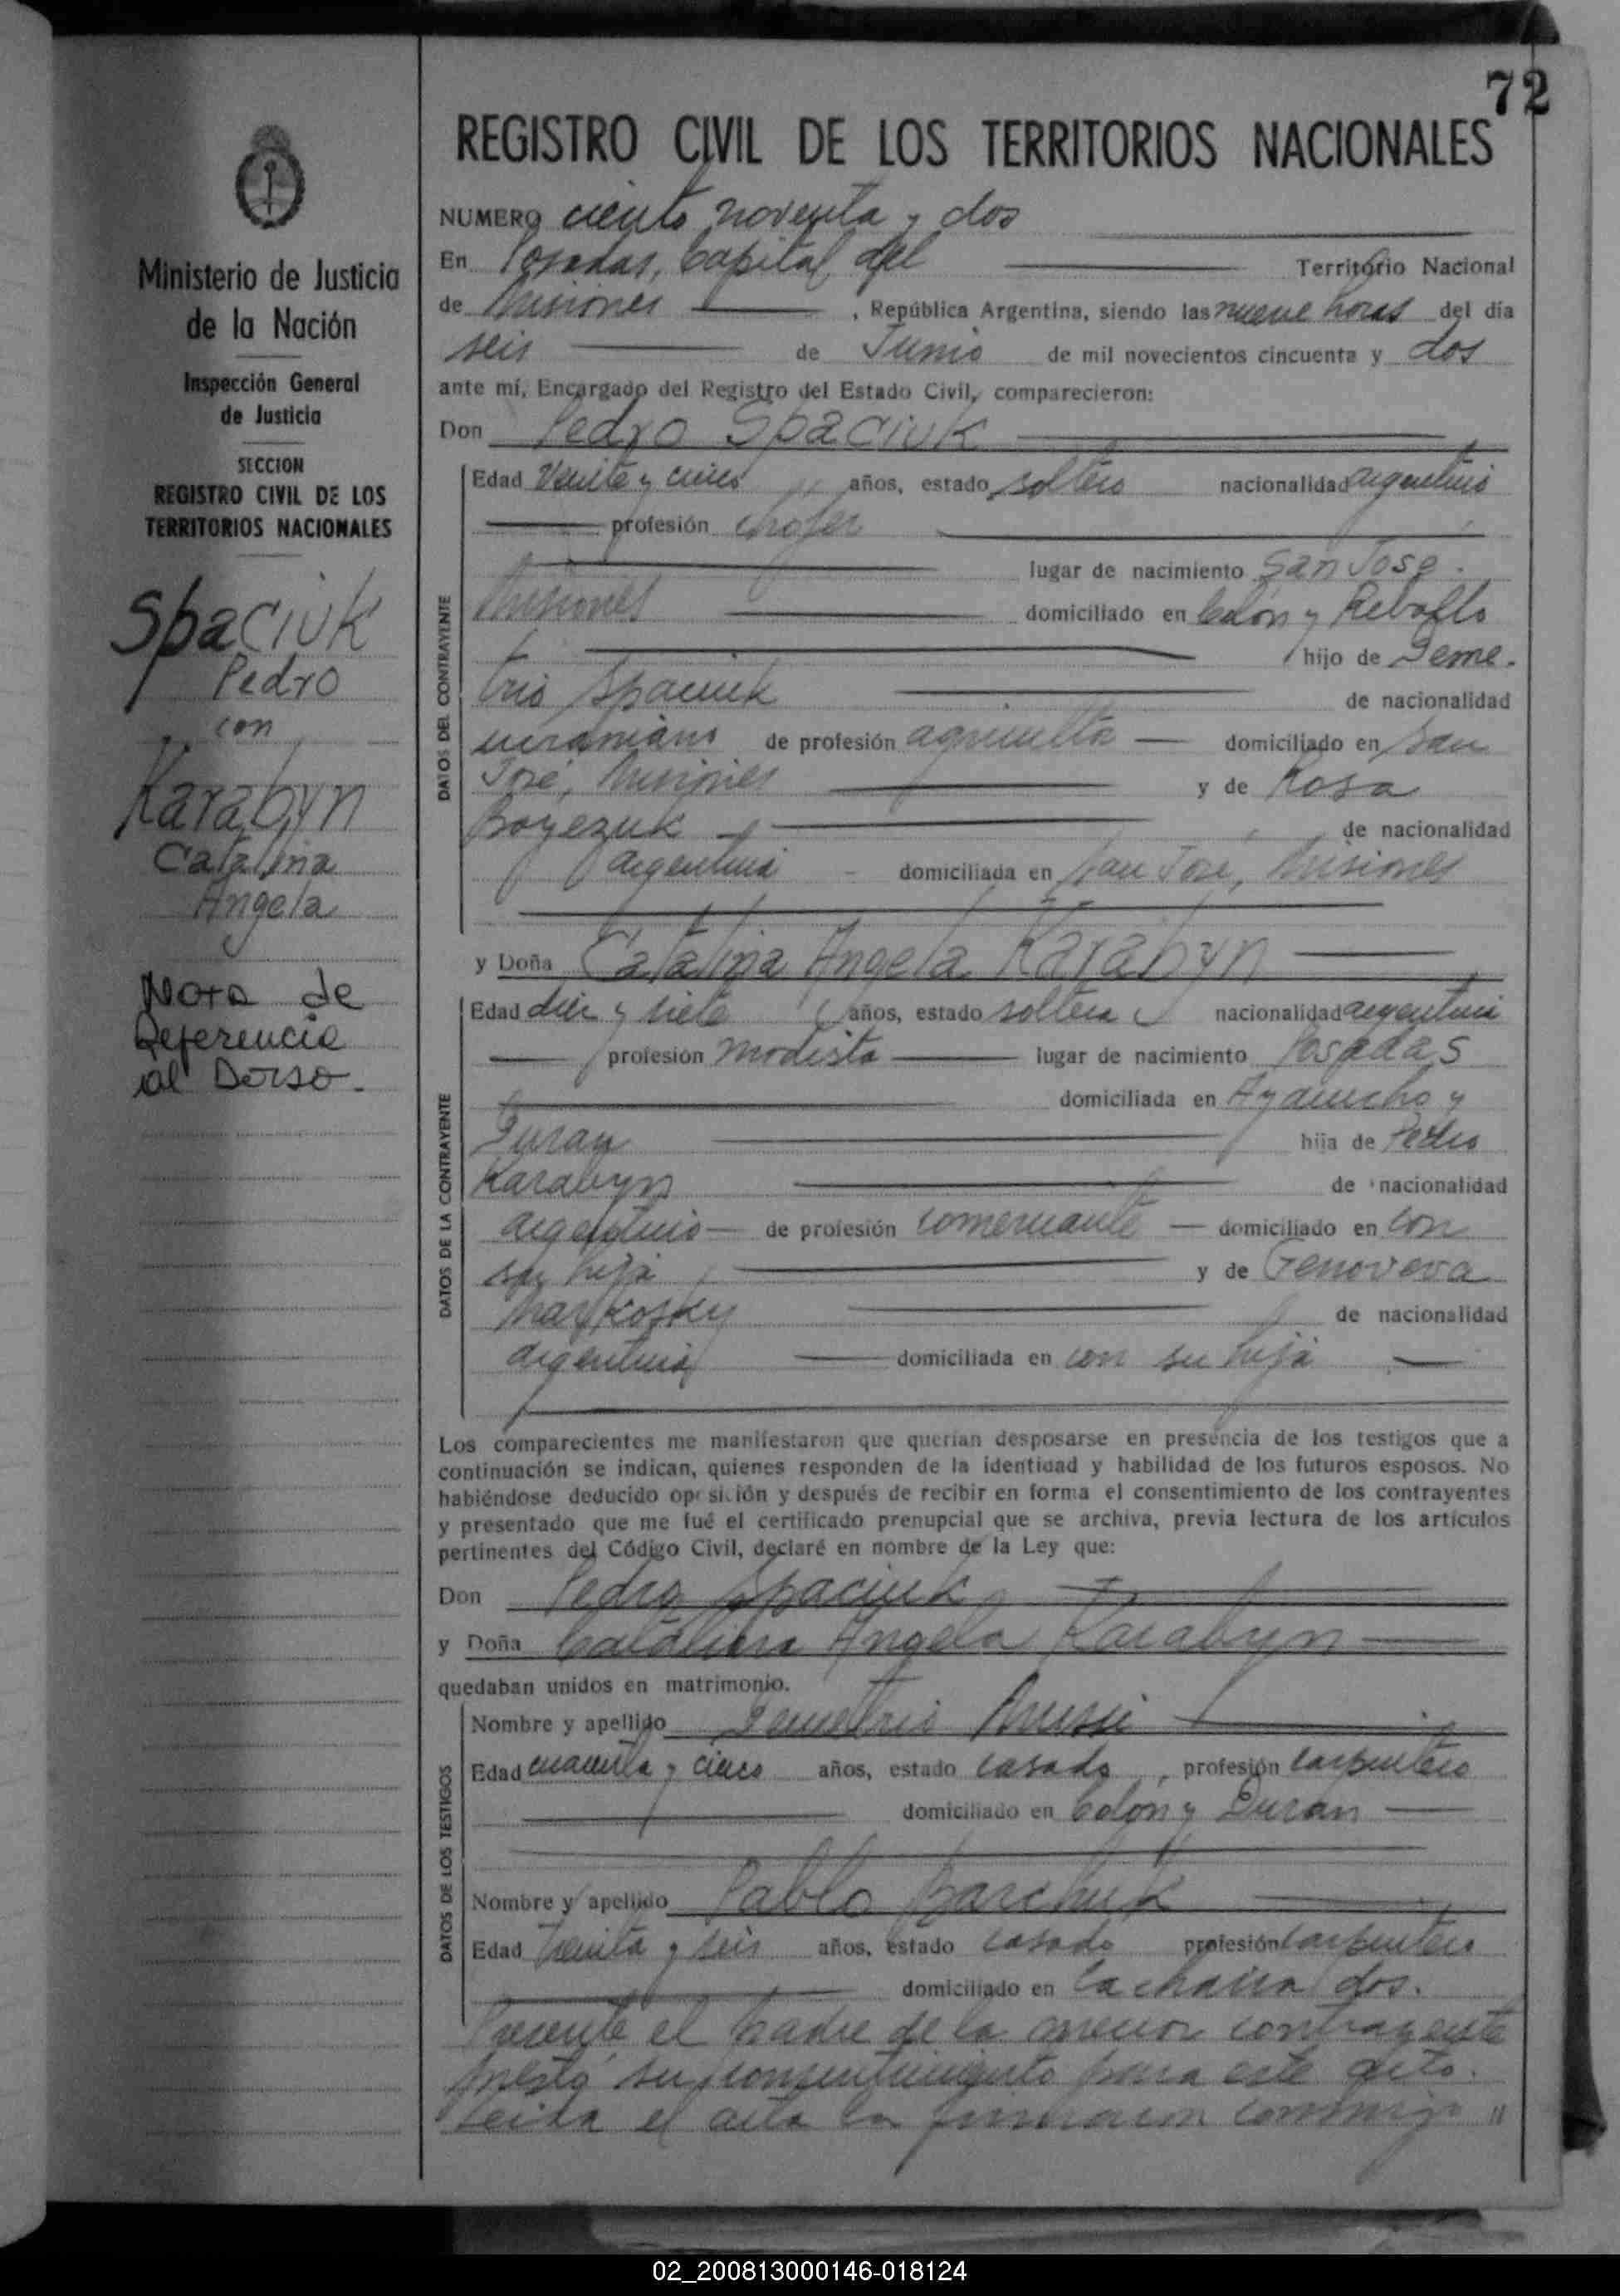 72
REGISTRO CIVIL DE LOS TERRITORIOS NACIONALES
Ministerio de Justicia
de la Nación
Inspección General
de Justicia
SECCION
REGISTRO CIVIL DE LOS
TERRITORIOS NACIONALES
Spaciuk
Pedro
con
Karabyn
Catalina
Angela
Nota de
Referencia
al Dorso.
NUMERO ciento noventa y dos
En Posadas, Capital del Territorio Nacional
de Misiones, República Argentina, siendo las nueve horas del día
seis de Junio de mil novecientos cincuenta y dos
ante mí, Encargado del Registro del Estado Civil, comparecieron:
Don Pedro Spaciuk
DATOS DEL CONTRAYENTE
Edad Veinte y cinco años, estado soltero nacionalidad argentino
profesión chofer
lugar de nacimiento San José.
Misiones domiciliado en Colón y
hijo de Deme-
trio Spaciuk de nacionalidad
ucraniano de profesión domiciliado en San
José, Misiones y de Rosa
de nacionalidad
argentina domiciliada en San José, Misiones
y Doña Catalina Angela Karabyn
DATOS DE LA CONTRAYENTE
Edad diez y siete años, estado soltera nacionalidad argentina
profesión modista lugar de nacimiento Posadas
domiciliada en Ayacucho y
Duran hija de Pedro
Karabyn de nacionalidad
argentino de profesión comerciante domiciliado en con
su hija y de Genoveva
de nacionalidad
argentina domiciliada en con su hija
Los comparecientes me manifestaron que querían desposarse en presencia de los testigos que a
continuación se indican, quienes responden de la identidad y habilidad de los futuros esposos. No
habiéndose deducido oposición y después de recibir en forma el consentimiento de los contrayentes
y presentado que me fué el certificado prenupcial que se archiva, previa lectura de los artículos
pertinentes del Código Civil, declaré en nombre de la Ley que:
Don Pedro Spaciuk
y Doña Catalina Angela Karabyn
quedaban unidos en matrimonio.
DATOS DE LOS TESTIGOS
Nombre y apellido Demetrio
Edad cuarenta y cinco años, estado casado, profesión carpintero
domiciliado en Colón y Duran
Nombre y apellido Pablo
Edad treinta y seis años, estado casado profesión carpintero
domiciliado en la chacra dos.
Presente el padre de la menor contrayente
prestó su consentimiento para este acto.
Leida el acta la firmaron conmigo "
02_200813000146-018124